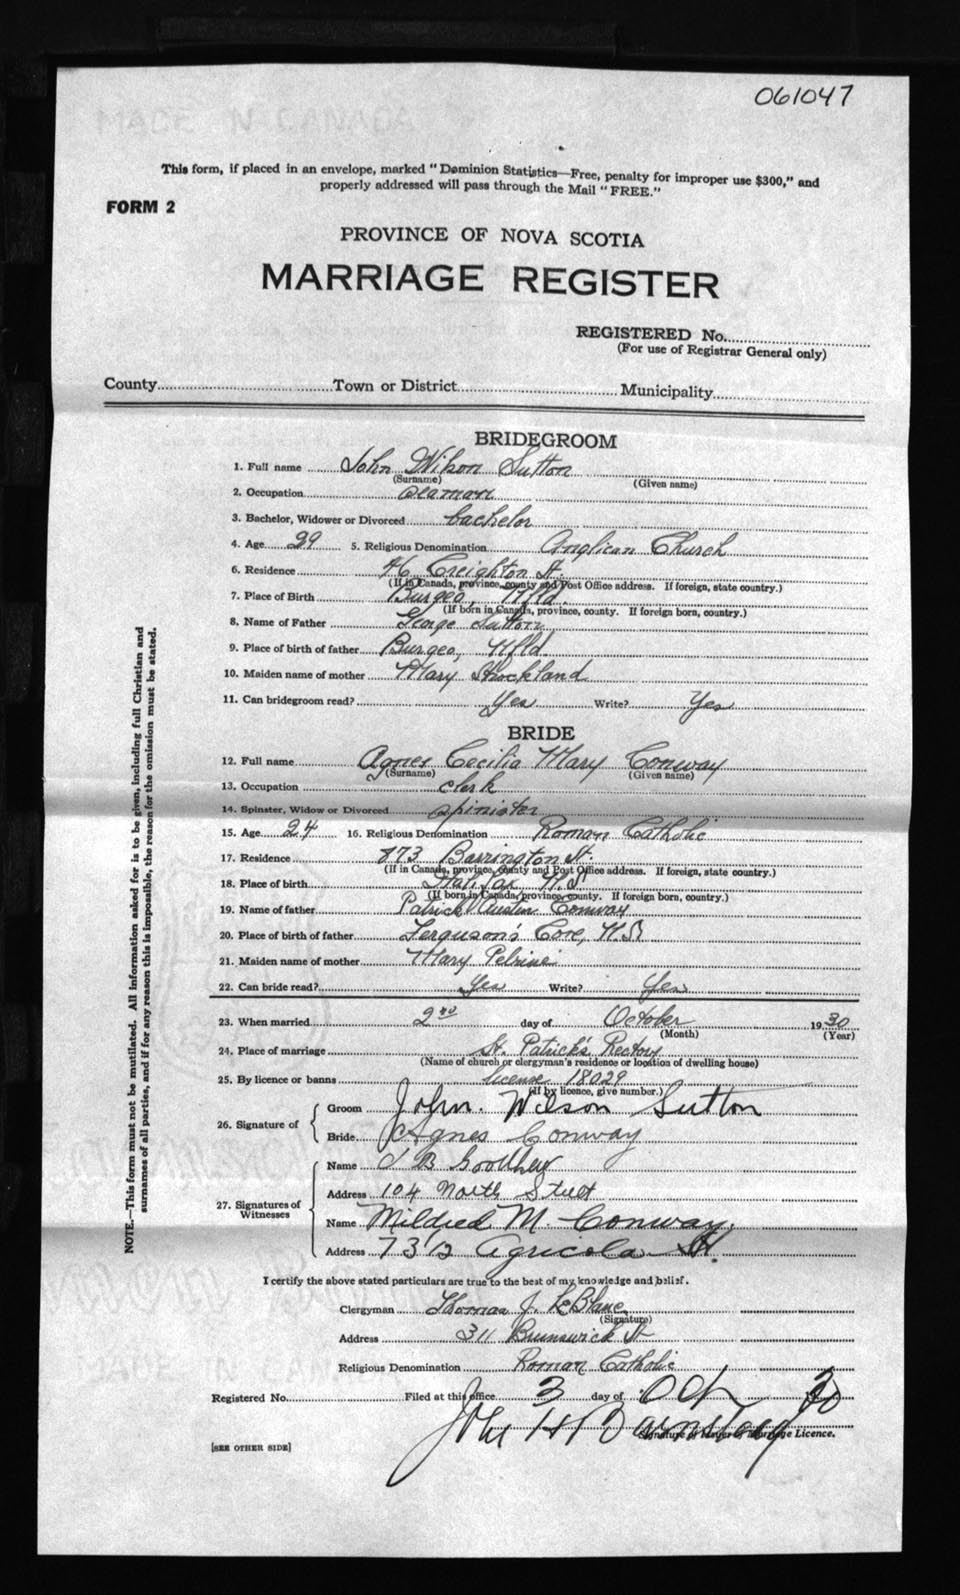 061047
This form, if placed in an envelope, marked "Dominion Statistics—Free, penalty for improper use $300," and
properly addressed will pass through the Mail "FREE."
FORM 2
PROVINCE OF NOVA SCOTIA
MARRIAGE REGISTER
REGISTERED No.
(For use of Registrar General only)
County Town or District Municipality
BRIDEGROOM
1. Full name John Wilson Sutton
(Surname) (Given name)
2. Occupation Seaman
3. Bachelor, Widower or Divorced bachelor
4. Age 29 5. Religious Denomination Anglican Church
6. Residence 46 Creighton St.
(If in Canada, province, county and Post Office address. If foreign, state country.)
7. Place of Birth Burgeo, Nfld.
(If born in Canada, province, county. If foreign born, country.)
8. Name of Father George Sutton
9. Place of birth of father Burgeo, Nfld.
10. Maiden name of mother Mary
11. Can bridegroom read? Yes Write? Yes
BRIDE
12. Full name Agnes Cecilia Mary Conway
(Surname) (Given name)
13. Occupation clerk
14. Spinster, Widow or Divorced spinister
15. Age 24 16. Religious Denomination Roman Catholic
17. Residence 873 Barrington St.
(If in Canada, province, county and Post Office address. If foreign, state country.)
18. Place of birth Halifax N.S.
(If born in Canada, province, county. If foreign born, country.)
19. Name of father Patrick Austin Conway
20. Place of birth of father Ferguson's Cove, N.S
21. Maiden name of mother Mary Pelrine
22. Can bride read? Yes Write? Yes
23. When married 2nd day of October 1930
(Month) (Year)
24. Place of marriage St. Patrick's Rectory
(Name of church or clergyman's residence or location of dwelling house)
25. By licence or banns license 18029
(If by licence, give number.)
26. Signature of
Groom John. Wilson Sutton
Bride Agnes Conway
27. Signatures of Witnesses
Name
Address 104 North Street
Name Mildred M. Conway.
Address 73½ Agricola St.
I certify the above stated particulars are true to the best of my knowledge and belief.
Clergyman Thomas J. LeBlanc
(Signature)
Address 311 Brunswick St
Religious Denomination Roman Catholic
Registered No. Filed at this office 3 day of Oct 30
John H Barnstead
Signature of Issuer of Marriage Licence.
[SEE OTHER SIDE]
NOTE.—This form must not be mutilated. All information asked for is to be given, including full Christian and
surnames of all parties, and if for any reason this is impossible, the reason for the omission must be stated.